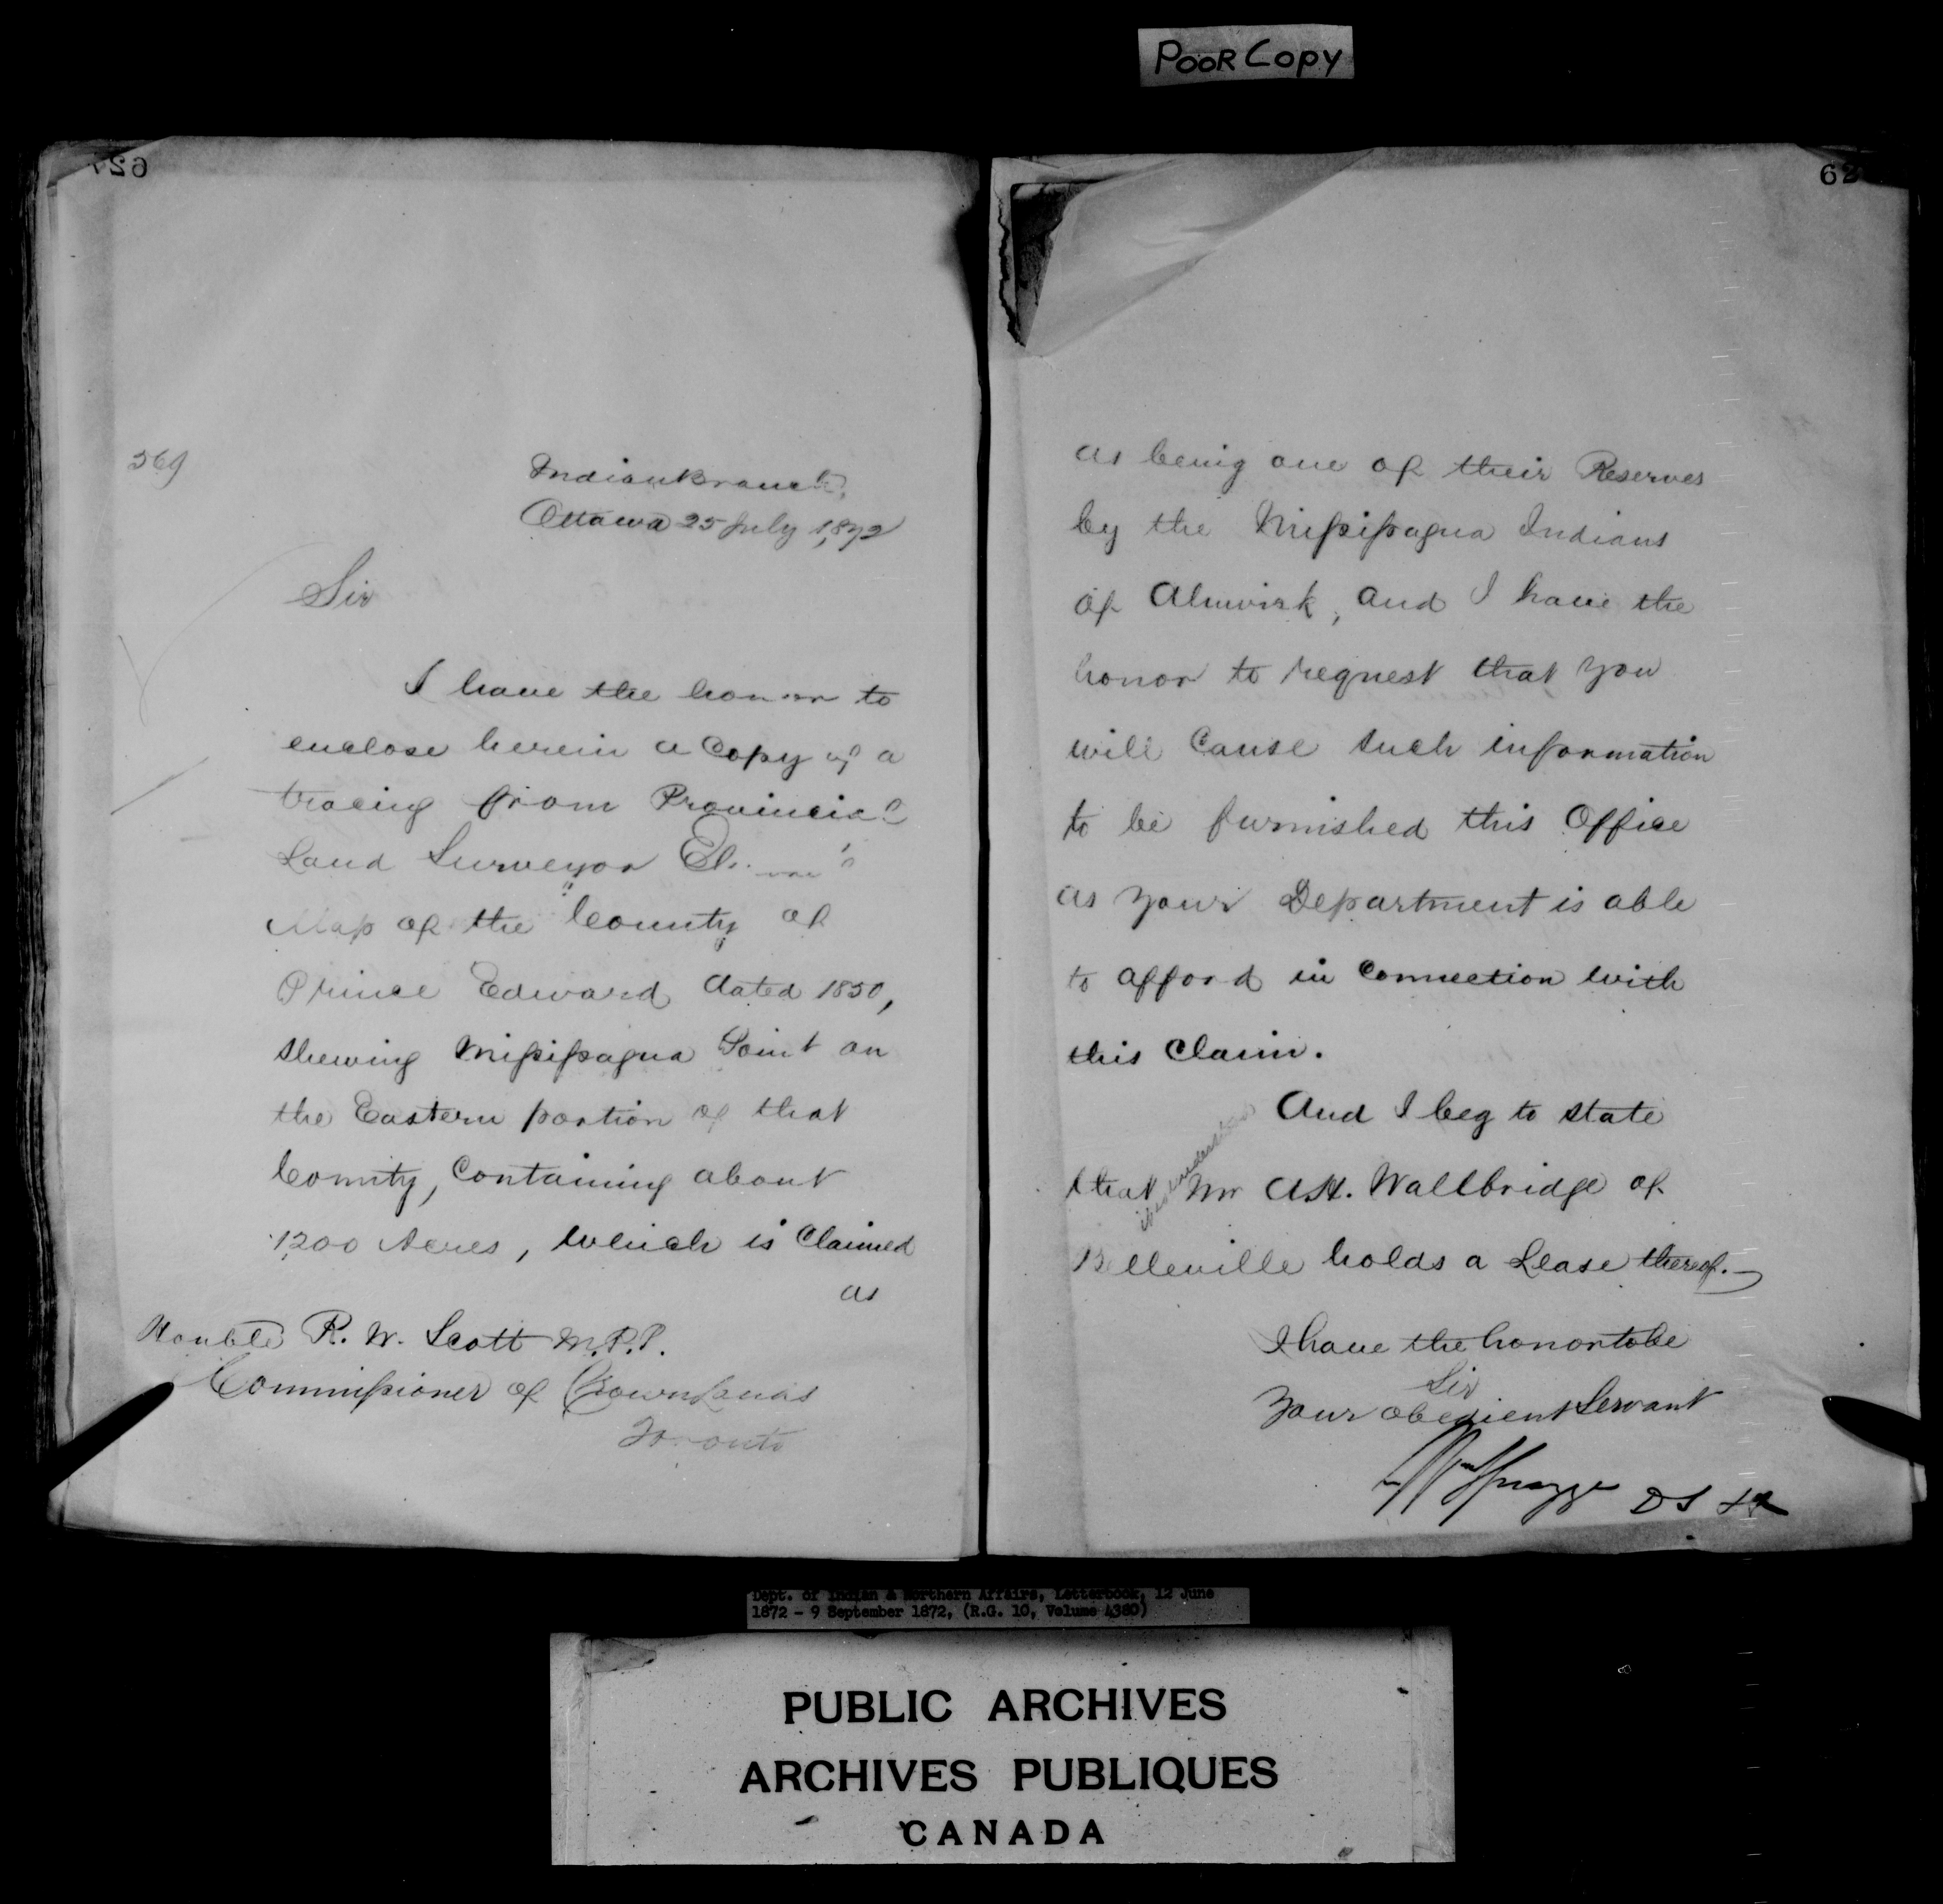 POOR COPY
627
569
Indian Branch,
Ottawa 25 July 1,872
Sir
I have the honor to
enclose herein a Copy of a
tracing from Provincial
Land Surveyor
Map of the County of
Prince Edward dated 1850,
shewing Missisagua Point on
the Eastern portion of that
County, Containing about
1200 Acres, which is Claimed
as
Honble R. W. Scott M.P.P.
Commissioner of Crown Lands
Toronto
62
as being one of their Reserves
by the Missisagua Indians
of Alnwick, and I have the
honor to request that you
will Cause such information
to be furnished this Office
as your Department is able
to afford in Connection with
this Claim.
And I beg to state
that it is understood Mr A.H. Wallbridge of
Belleville holds a Lease thereof.
I have the honor to be
Sir
Your obedient Servant
Dept. of Indian & Northern Affairs, Letterbook, 12 June
1872 - 9 September 1872, (R.G. 10, Volume 4380)
PUBLIC ARCHIVES
ARCHIVES PUBLIQUES
CANADA